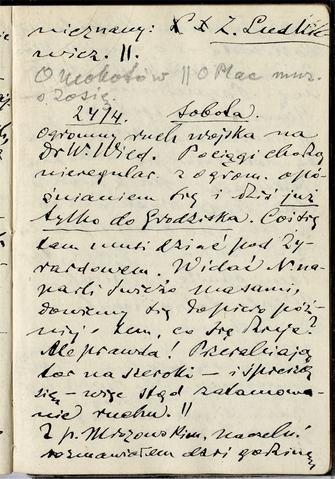 nieznany: X x Z. Ludtke-
wicz. ||
O Mokotów || O Plac mur.
o Zosię.
24/4. Sobota.
Ogromny ruch wojska na
Dr W. Wied. Pociągi chodzą
nieregular. z ogrom. opó-
źnianiem się i dziś już
tylko do Grodziska. Coś się
tam musi dziać pod Ży-
rardowem. Widać N. na-
parli świeżo masami,
dowiemy się dopiero póź-
niej, tem, co się kryje?
Ale prawda! Przerabiają
tor na szeroki – i spieszą
się – więc stąd zatamowa-
nie ruchu. ||
Z p. Mrozowskim, naczeln.
rozmawiałem dziś godzinę